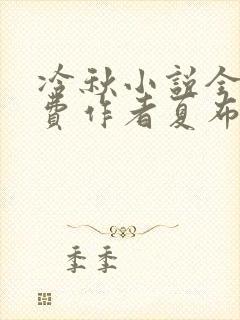 冷秋小说全
費作者夏布
季季